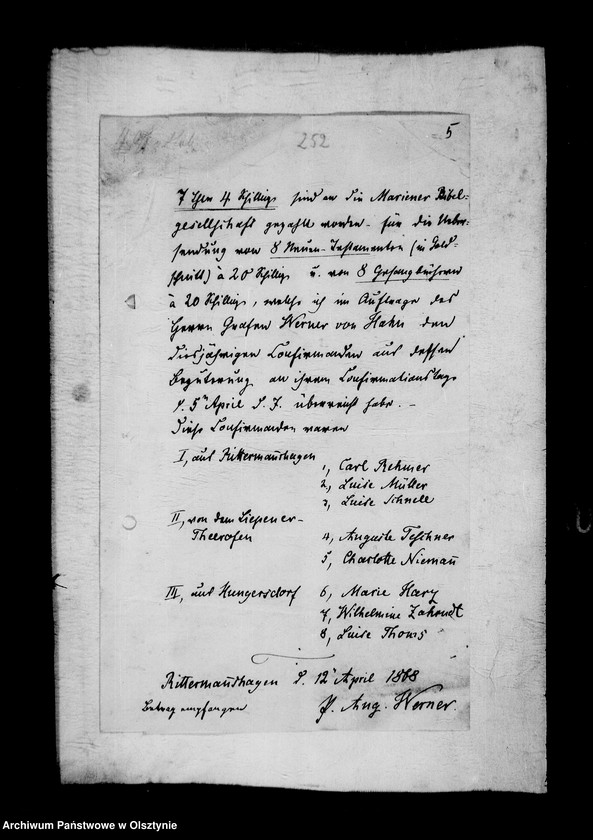 252
5
7 Thlr 4 Schillinge sind an die Warener Bibel-
gesellschaft gezahlt worden für die Ueber-
sendung von 8 Neuen-Testamenten (in Gold-
schnitt) à 20 Schillg u. von 8 Gesangbüchern
à 20 Schillg, welche ich im Auftrage des
Herrn Grafen Werner von Hahn den
diesjährigen Confirmanden aus dessen
Begüterung an ihrem Confirmationstage
d. 5n April d. J. überreicht habe. –
Diese Confirmanden waren
I, aus Rittermanshagen
1, Carl Rehmer
2, Luise Müller
3, Luise Schnell
II, von dem Liepener-
Theerofen
4, Auguste Teschner
5, Charlotte Niemann
III, aus Hungersdorf
6, Marie Hary
7, Wilhelmine Zahrndt
8, Luise Thoms
Rittermanshagen d. 12n April 1868
Betrag empfangen
P. Aug. Werner.
Archiwum Państwowe w Olsztynie